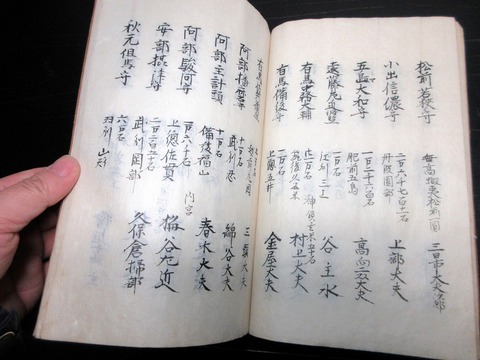 松前若狭守
無高蝦夷松前一国
三日市大夫次郎
小出信濃守
二万六千七百十一石
丹波園部
上部大夫
五島大和守
一万二千六百石
肥前五島
高向
大夫
一万石
江州三上
谷主水
有馬中務大輔
廿一万石
筑後久留米
村上大夫
有馬備後守
一万石
上総五井
金屋大夫
阿部播磨守
十万石
武州忍
三頭大夫
綿谷大夫
阿部主計頭
十万石
備後福山
春木大夫
阿部駿河守
一万六千石
上総佐貫
内宮
梅谷左近
安部摂津守
二万二百五十石
武州岡部
秋元但馬守
六万石
羽州山形
久保倉掃部